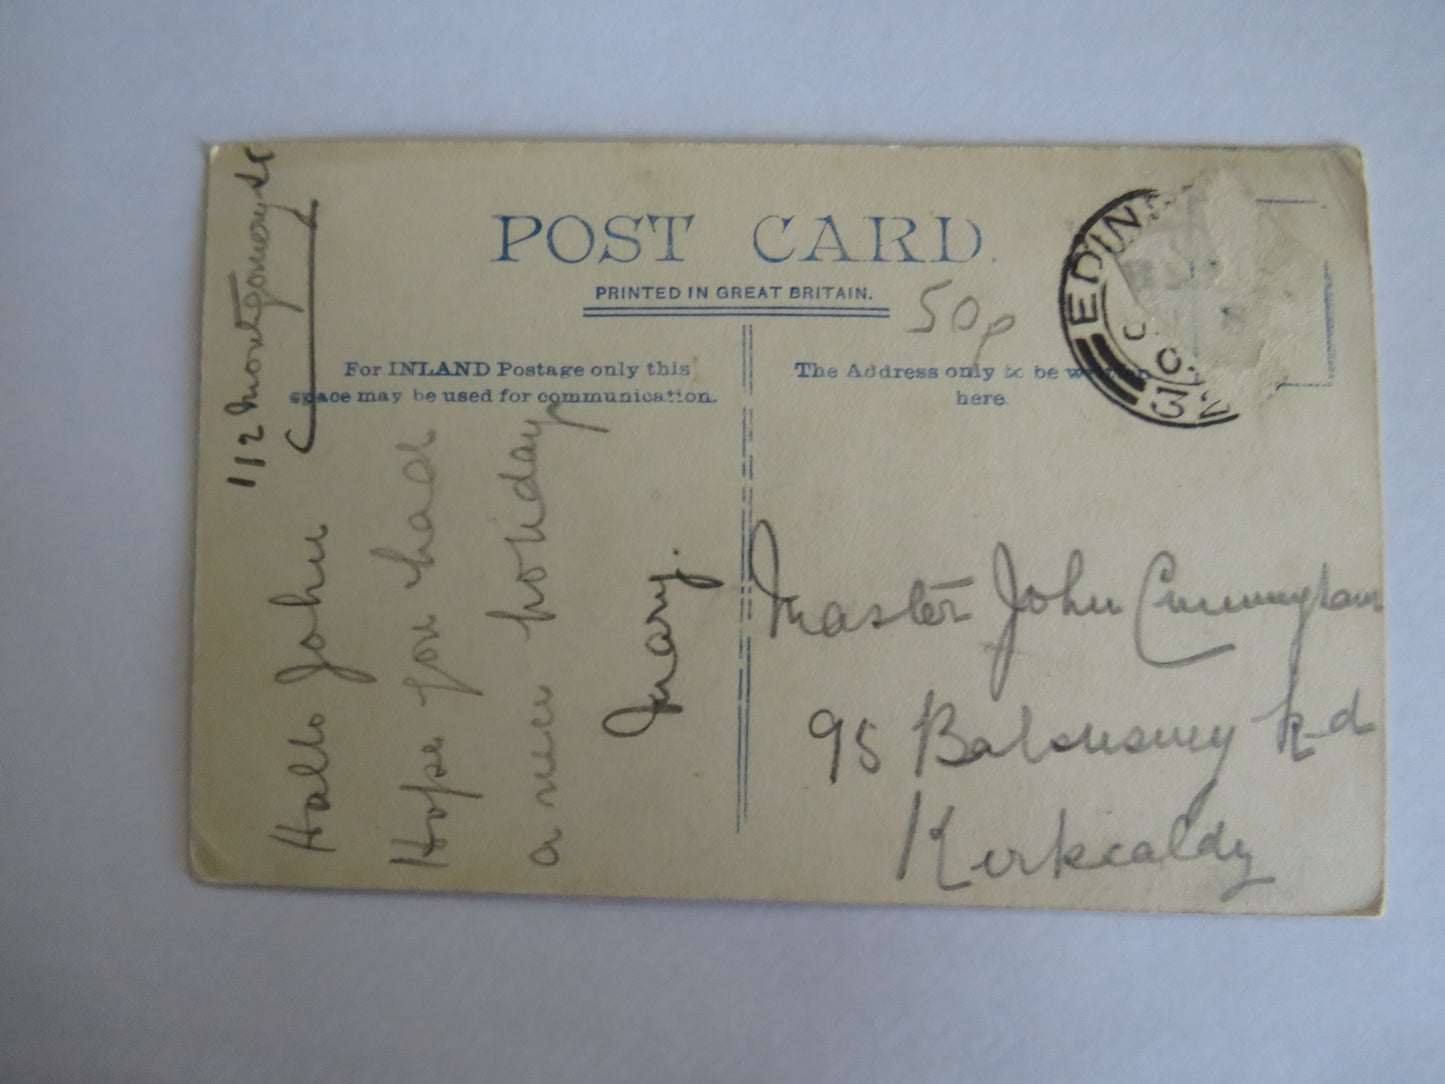 POST CARD.
PRINTED IN GREAT BRITAIN.
50p
For INLAND Postage only this
space may be used for communication.
The Address only to be
here.
EDIN
112 Montgomery St
Hallo John
Hope you had
a nice holiday
Mary.
Master John Cunningham
95 Balsusney Rd
Kirkcaldy